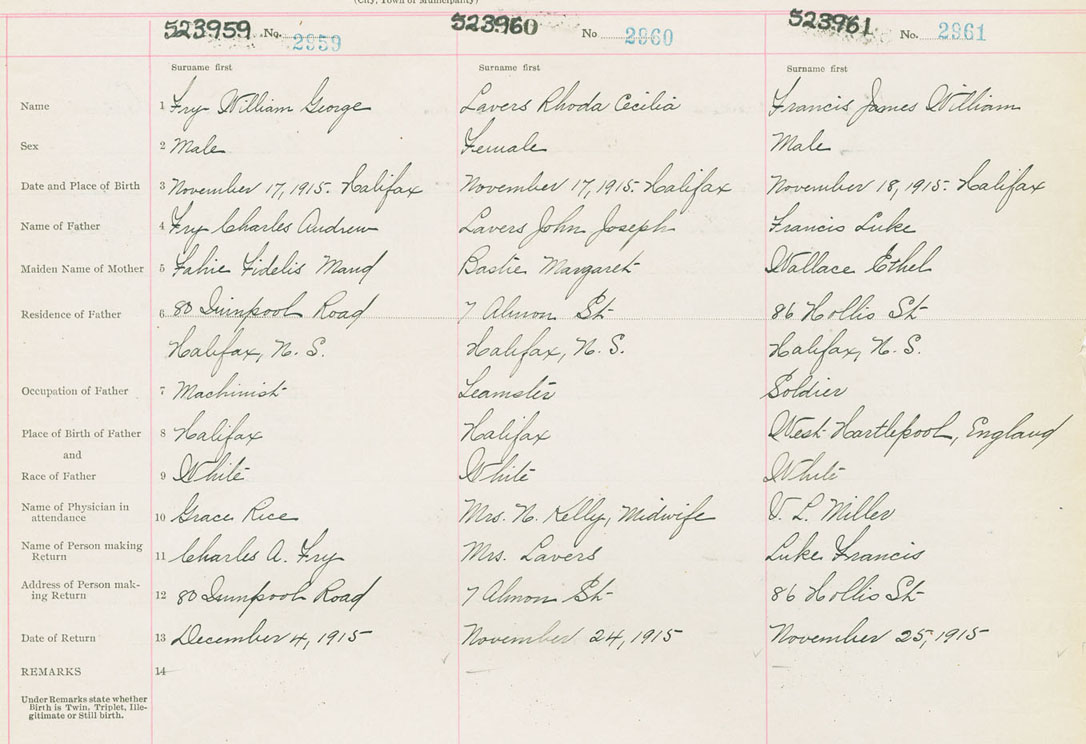 (City, Town or Municipality)
523959 No. 2959 523960 No 2960 523961 No. 2961
Surname first Surname first Surname first
Name 1 Fry William George Lavers Rhoda Cecilia Francis James William
Sex 2 Male Female Male
Date and Place of Birth 3 November 17, 1915. Halifax November 17, 1915. Halifax November 18, 1915. Halifax
Name of Father 4 Fry Charles Andrew Lavers John Joseph Francis Luke
Maiden Name of Mother 5 Fahie Fidelis Maud Bastie Margaret Wallace Ethel
Residence of Father 6 80 Road 7 Almon St 86 Hollis St
Halifax, N. S. Halifax, N. S. Halifax, N. S.
Occupation of Father 7 Machinist Teamster Soldier
Place of Birth of Father 8 Halifax Halifax West Hartlepool, England
and
Race of Father 9 White White White
Name of Physician in
attendance 10 Grace Rice Mrs. N. Kelly, Midwife V. L. Miller
Name of Person making
Return 11 Charles A. Fry Mrs. Lavers Luke Francis
Address of Person mak-
ing Return 12 80 Road 7 Almon St 86 Hollis St
Date of Return 13 December 4, 1915 November 24, 1915 November 25, 1915
REMARKS 14
Under Remarks state whether
Birth is Twin, Triplet, Ille-
gitimate or Still birth.